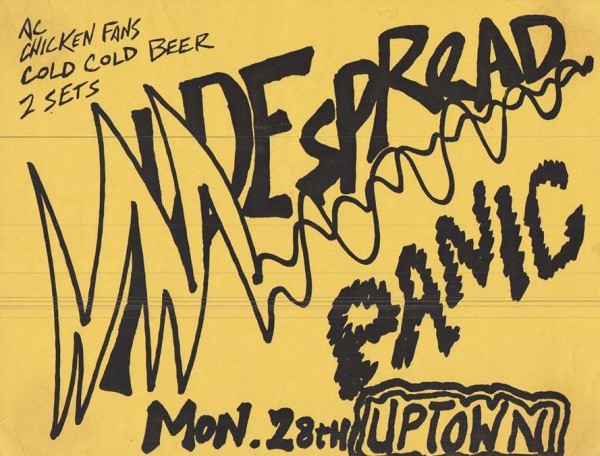 AC
CHICKEN FANS
COLD COLD BEER
2 SETS
WIDESPREAD
PANIC
MON. 28TH UPTOWN